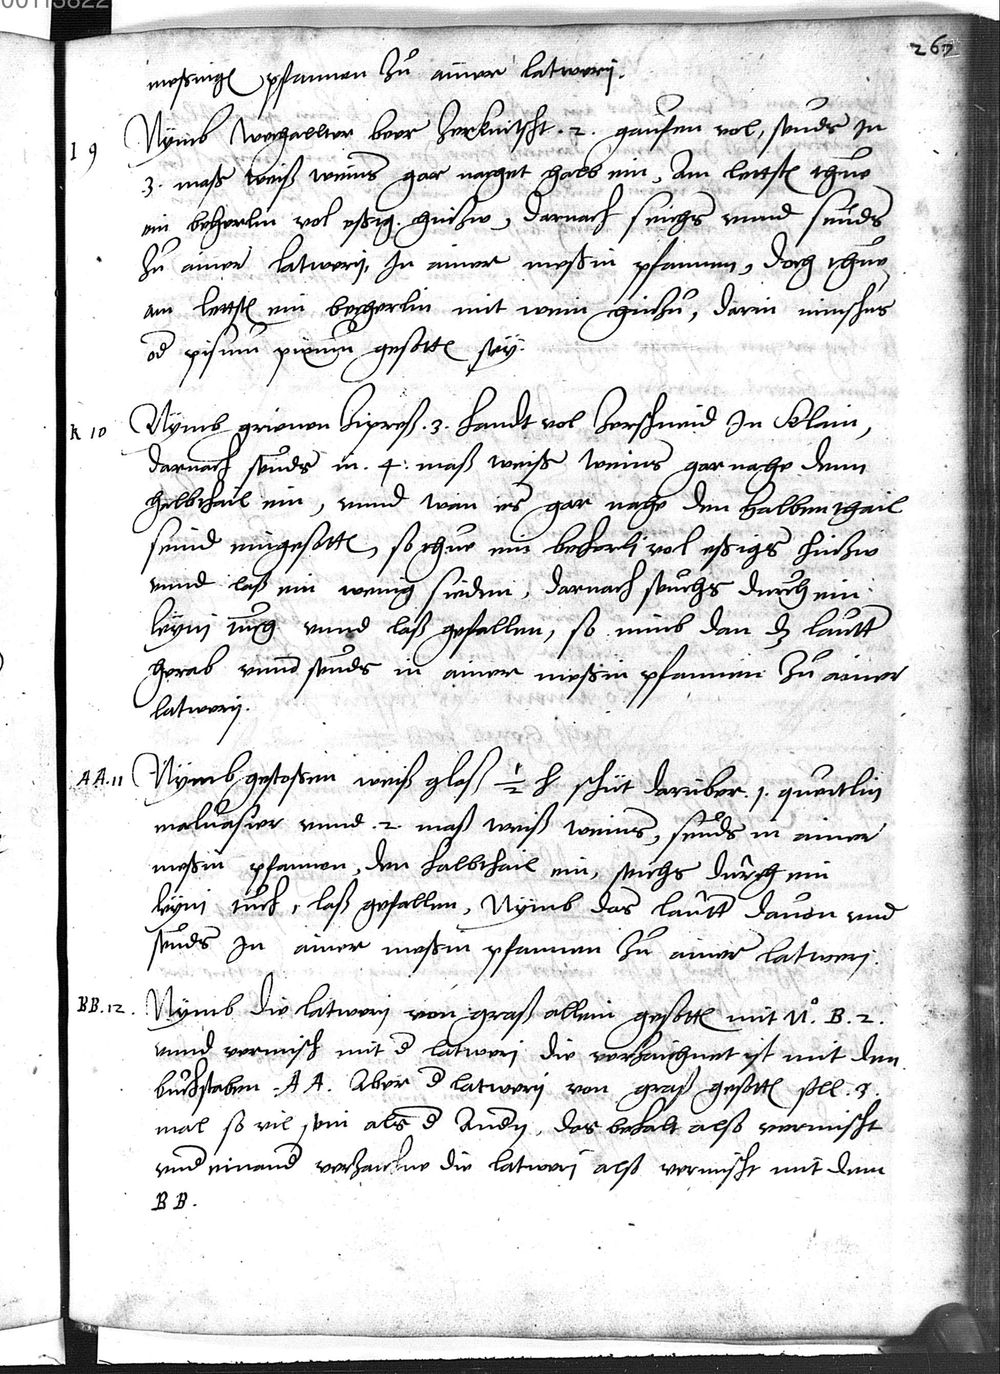 00113822
267
meßingē pfannen Zů ainer latwerj.
I 9 Nÿmb wechallter beer zerknitscht .2. gaufen vol, seuds In
3. maß weiß weins gar nachet halb ein, Am lettstē thue
ein becherlin vol eßig hinzw, darnach seichs vnnd seuds
Zů ainer latwerÿ, In ainer meßin pfannen, doch thue
am lettstē ein becherlin mit wein hinzů, darin
od pisum gesottē seÿ.
K 10 Nÿmb grienen Zipreß .3. handt vol Zerschneid In Klain,
darnach seuds in .4. maß weiß weins gar nahe denn
halbthail ein, vnnd wan es gar nahe den halbenthail
seind eingesottē, so thue ein becherli vol eßigs hinzw
vnnd laß ein wenig sieden, darnach seuchs durch ein
leÿni tuch vnnd laß gefallen, so nimb dan dz lautt
herab vnnd seuds in ainer meßin pfannen Zů ainer
latwerÿ.
AA.11 Nÿmb gestoßen weiß glaß ½ ℔ schüt darüber .1. quertlin
maluasier vnnd .2. maß weiß weins, seuds in ainer
meßin pfannen, den halbthail ein, seichs durch ein
leÿni tuch, laß gefallen, Nÿmb das lautt dauon vnd
seuds In ainer meßin pfannen Zů ainer latwerj.
BB.12. Nÿmb die latwerj von graß allein gesottē mit N°. B. 2.
vnnd vermisch mit d latwerj die verzaichnet ist mit den
buchstaben .AA. Aber d latwerÿ von graß gesottē soll .3.
mal so vil sein als d Andÿ, das behalt alß vermischt
vnd einand verzaichne die latwerj alß vermischt mit dem
BB.